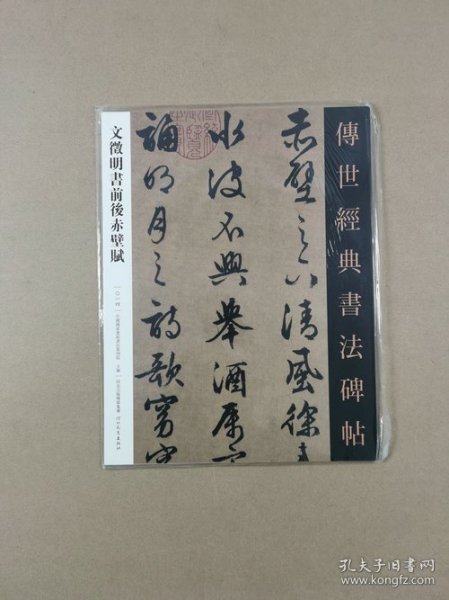 傳世經典書法碑帖
赤壁之下清風徐來
水波不興舉酒屬客
誦明月之詩歌窈窕
文徵明書前後赤壁賦
孔夫子旧书网
www.kongfz.com